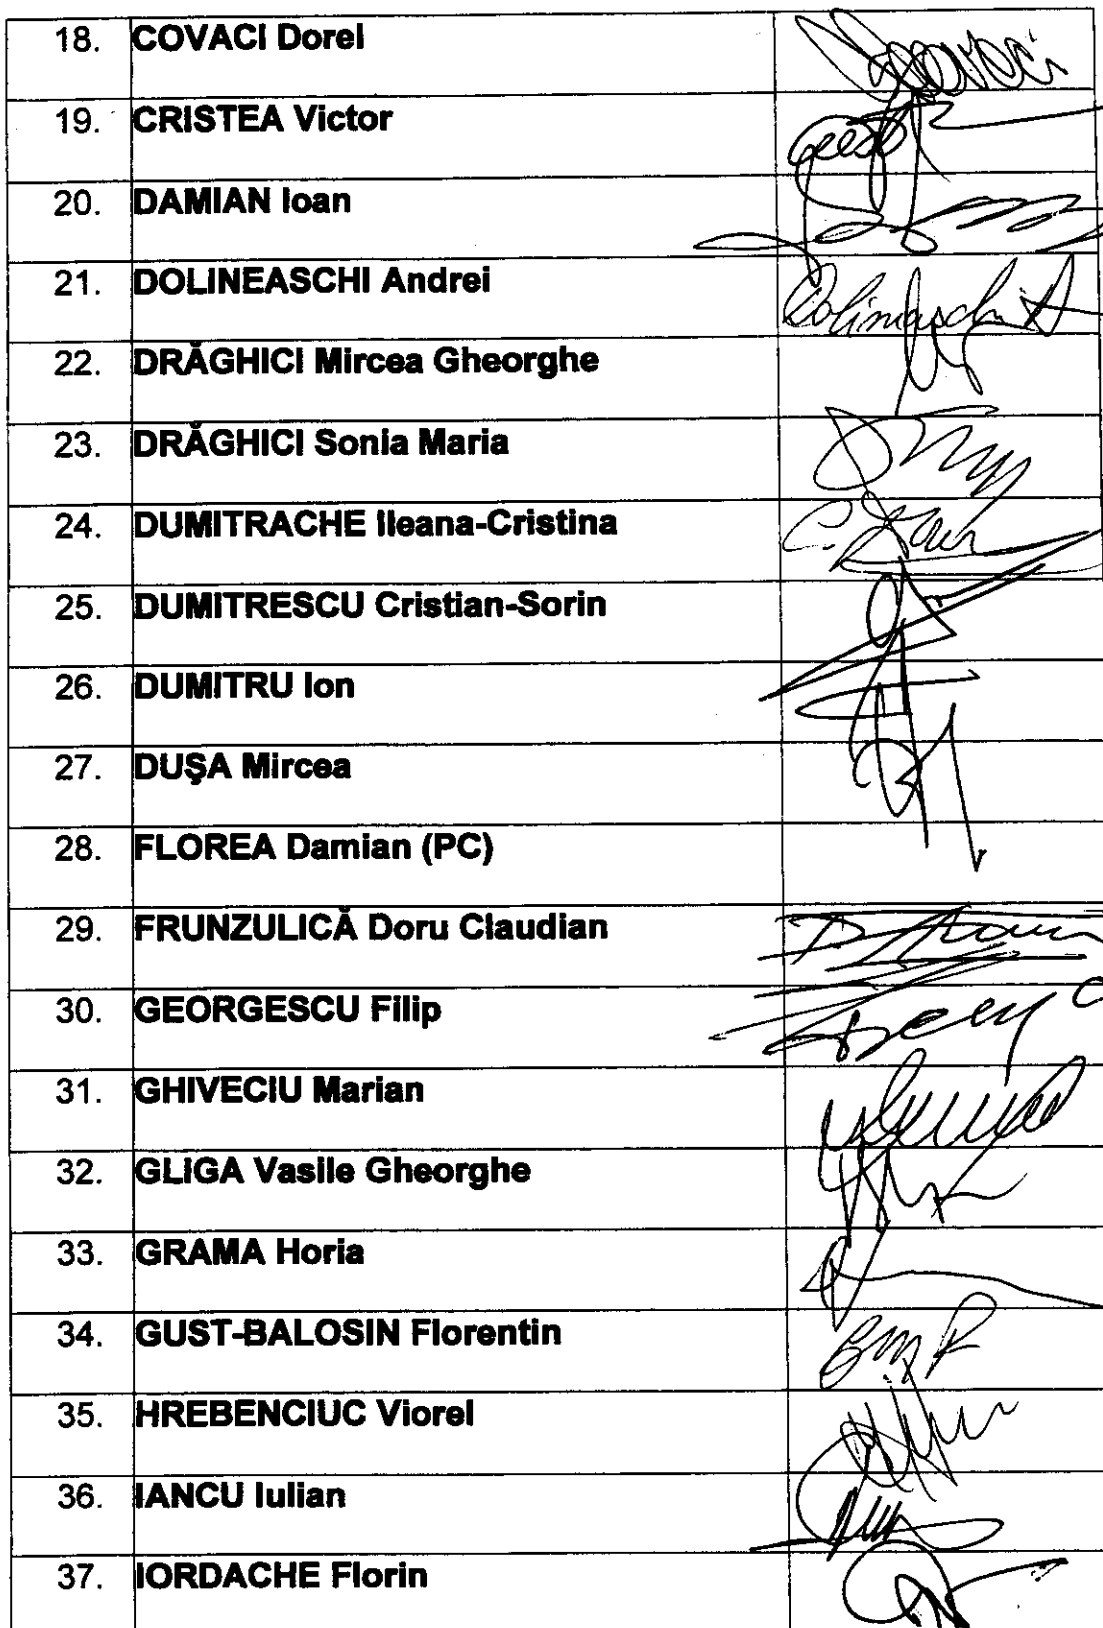 18. COVACI Dorel Covaci
19. CRISTEA Victor
20. DAMIAN Ioan
21. DOLINEASCHI Andrei
22. DRĂGHICI Mircea Gheorghe
23. DRĂGHICI Sonia Maria
24. DUMITRACHE Ileana-Cristina
25. DUMITRESCU Cristian-Sorin
26. DUMITRU Ion
27. DUŞA Mircea
28. FLOREA Damian (PC)
29. FRUNZULICĂ Doru Claudian
30. GEORGESCU Filip
31. GHIVECIU Marian
32. GLIGA Vasile Gheorghe
33. GRAMA Horia
34. GUST-BALOSIN Florentin
35. HREBENCIUC Viorel
36. IANCU Iulian
37. IORDACHE Florin